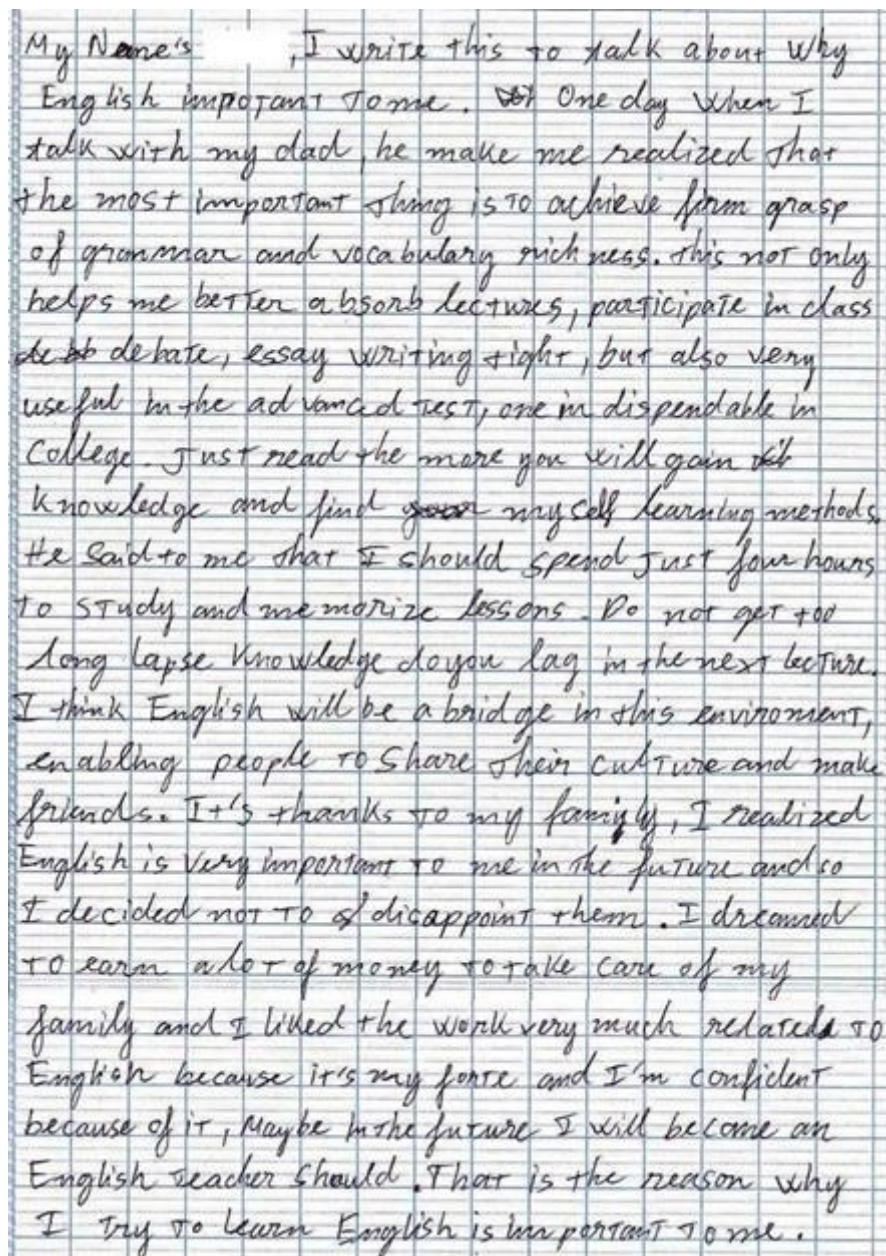 My Name's , I write this to talk about Why
English impotant to me. One day when I
talk with my dad, he make me realized that
the most important thing is to achieve firm grasp
of grammar and vocabulary rich ness. this not only
helps me better absorb lectures, participate in class
debate, essay writing tight, but also very
useful in the advanced test, one in dispendable in
College. Just read the more you will gain
knowledge and find my self learning methods.
He Said to me that I should spend Just four hours
to study and memorize lessons. Do not get too
long lapse knowledge do you lag in the next lecture.
I think English will be a bridge in this enviroment,
enabling people to Share their culture and make
friends. It's thanks to my family, I realized
English is very important to me in the future and so
I decided not to disappoint them. I dreamed
to earn a lot of money to take care of my
family and I liked the work very much related to
English because it's my forte and I'm confident
because of it, Maybe in the future I will become an
English teacher Should. That is the reason why
I try to learn English is important to me.